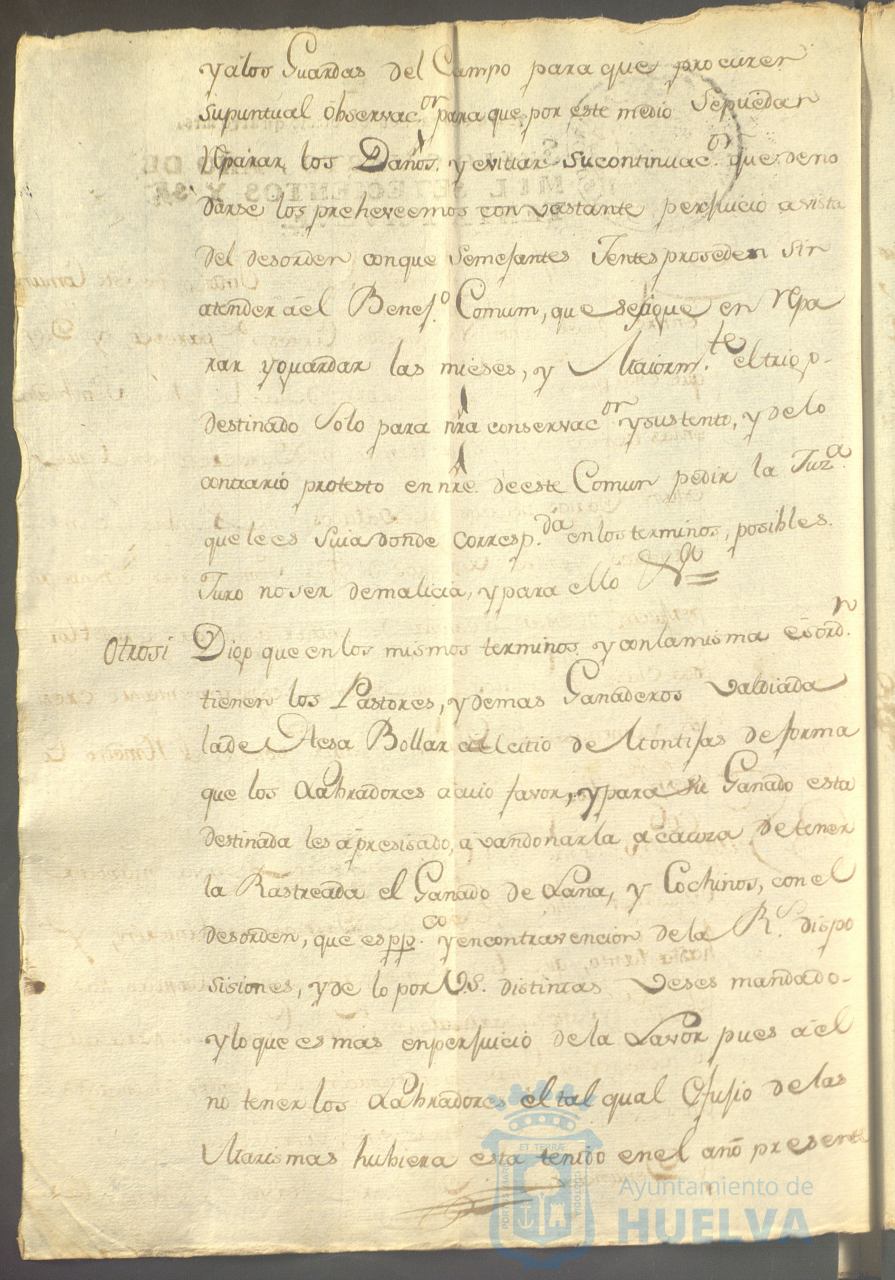 yalos Guardas del Campo para que procuren
supuntual observac.on para que por este medio sepuedan
Reparar los Daños, y evitar su continuac.on que deno
darse los preheveemos con vastante perjuicio avista
del desorden conque semejantes Jentes proseden sin
atender áel Benef.o Comun, que sesigue en Repa
rar yguardar las mieses, y Maiorm.te eltrigo
destinado solo para nra conservac.on ysustento, y delo
contrario protesto en nre. de este Comun pedir la Juz.a
que le es suia donde corresp.da enlos terminos, posibles.
Juro no ser demalicia, y para ello &a=
Otrosi Digo que en los mismos terminos y con la misma desord.n
tienen los Pastores, y demas Ganaderos valdiada
la de Aesa Bollar al citio de Montijas de forma
que los Labradores acuio favor, y para su Ganado esta
destinada les apresisado, avandonarla acauza de tener
la Rastreada el Ganado de Lana, y Cochinos, con el
desorden, que es pp.co y encontravencion de la R.s dispo
sisiones, y de lo por V.S. distintas veses mandado
y lo que es mas enperjuicio de la Lavor pues á el
no tener los Labradores el tal qual Refujio de las
Marismas hubiera esta tenido en el año presente
ET TERRÆ
Ayuntamiento de
HUELVA